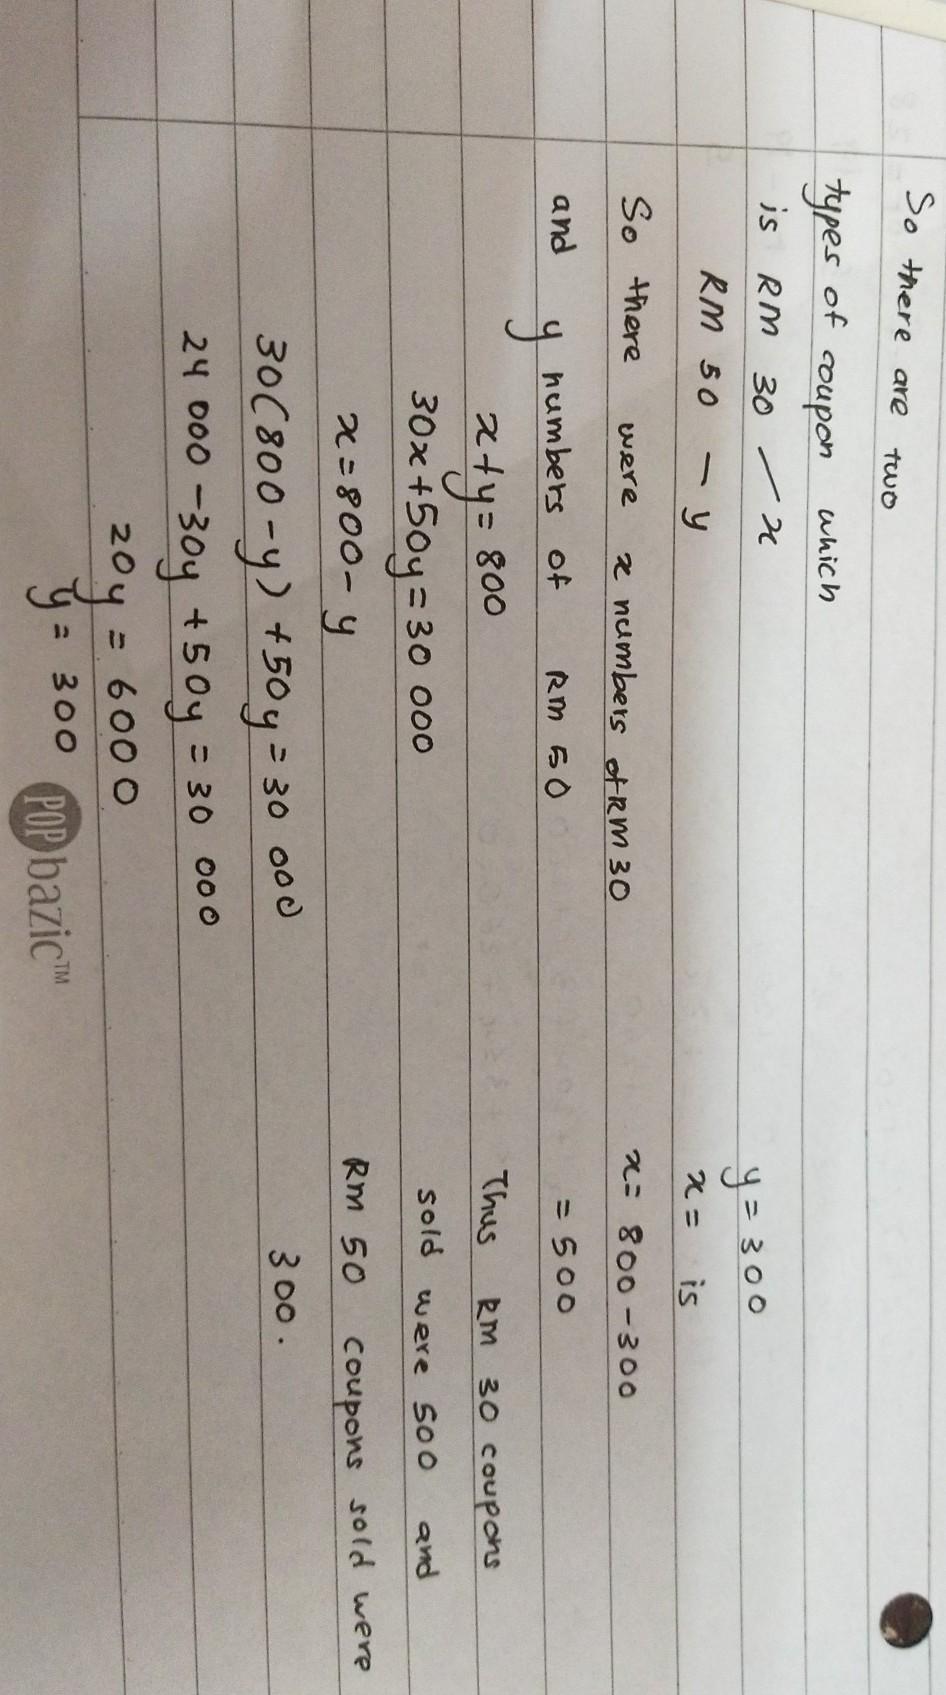 So there are two
types of coupon which
is RM 30 - x
RM 50 - y
So there were x numbers of RM 30
and y numbers of RM 50
x + y = 800
30x + 50y = 30 000
x = 800 - y
30(800 - y) + 50y = 30 000
24 000 - 30y + 50y = 30 000
20y = 6000
y = 300
y = 300
x = is
x = 800 - 300
= 500
Thus RM 30 coupons
sold were 500 and
RM 50 coupons sold were
300.
POP bazic™